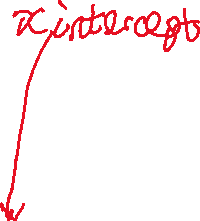 x intercept